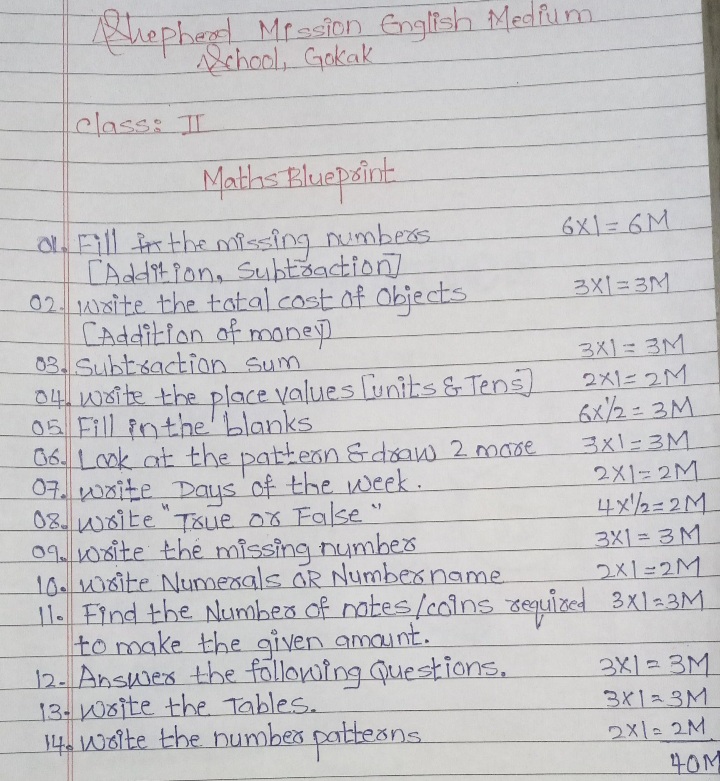 Shepherd Mission English Medium
School, Gokak
Class: II
Maths Blueprint
01. Fill in the missing numbers 6x1 = 6M
[Addition, Subtraction]
02. Write the total cost of Objects 3x1 = 3M
[Addition of money]
03. Subtraction sum 3x1 = 3M
04. Write the place values [units & Tens] 2x1 = 2M
05. Fill in the blanks 6x1/2 = 3M
06. Look at the pattern & draw 2 more 3x1 = 3M
07. Write Days of the week. 2x1 = 2M
08. Write "True or False" 4x1/2 = 2M
09. Write the missing number 3x1 = 3M
10. Write Numerals OR Number name 2x1 = 2M
11. Find the Number of notes/coins required 3x1 = 3M
to make the given amount.
12. Answer the following Questions. 3x1 = 3M
13. Write the Tables. 3x1 = 3M
14. Write the number patterns 2x1 = 2M
40M